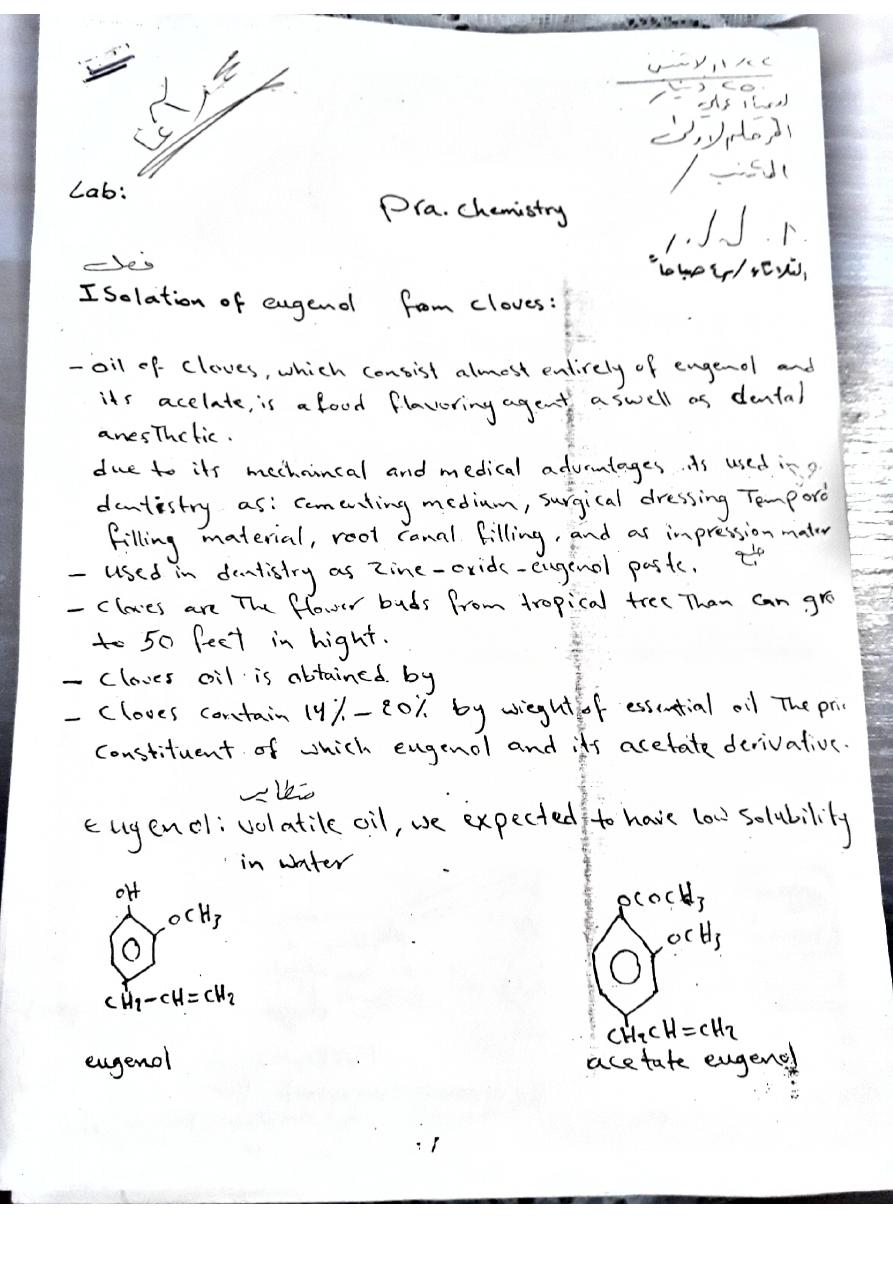 ٢٥٠ دينار
المرحلة الاولى
Lab:
Pra. chemistry
الثلاثاء / صباحاً
ISolation of eugenol from cloves:
- oil of cloves, which consist almost entirely of eugenol and
its acelate, is a food flavoring agent aswell as dental
anesthetic.
due to its mechaincal and medical advantages its used in
dentistry as: cementing medium, surgical dressing Tempora
filling material, root canal filling, and as impression mater
طبع
- used in dentistry as Zine-oxide-eugenol paste.
- cloves are The flower buds from tropical tree Than can gro
to 50 feet in hight.
- cloves oil is obtained by
- cloves contain 14% - 20% by wieght of essential oil The pri
constituent of which eugenol and its acetate derivative.
متطاير
Eugenol: volatile oil, we expected to have low solubility
in water
OH
OCH3
CH2-CH=CH2
eugenol
OCOCH3
OCH3
CH2CH=CH2
acetate eugenol
١